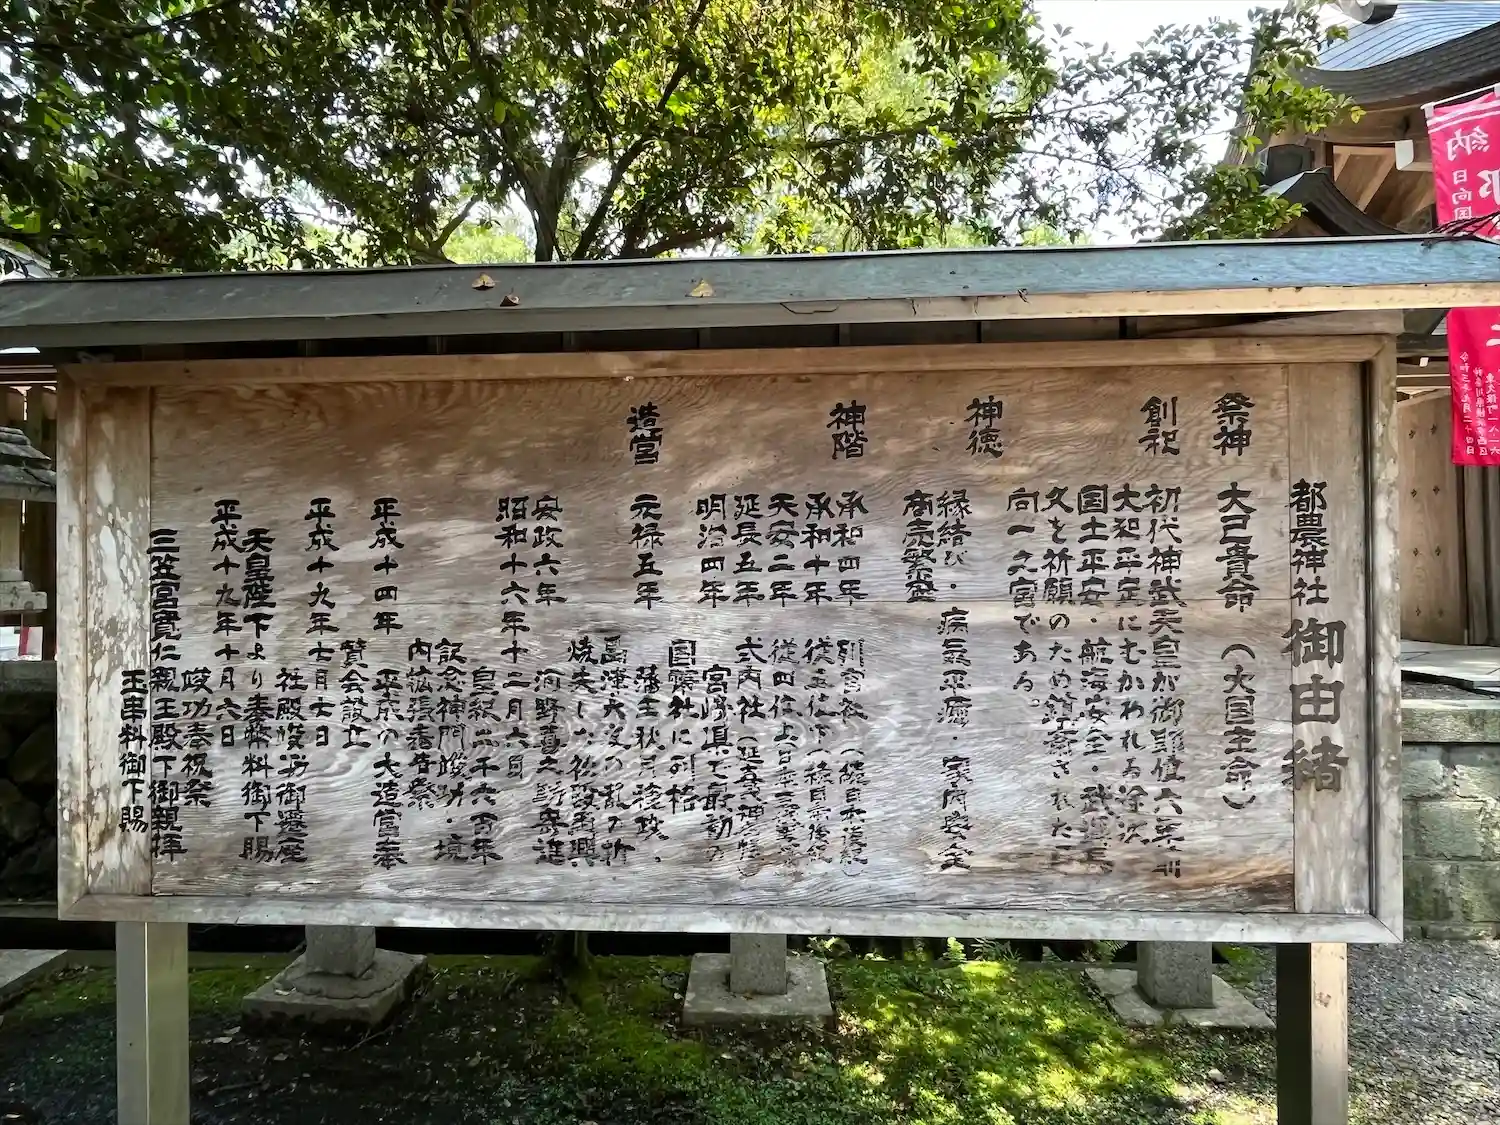 都農神社 御由緒
祭神 大己貴命(大国主命)
創祀 初代神武天皇が御即位六年前
大和平定にむかわれる途次
国土平安・航海安全・武運長
久を祈願のため鎮斎された日
向一之宮である。
神徳 縁結び・病気平癒・家内安全
商売繁盛
神階 承和四年 官社(続日本後紀)
承和十年 従五位下(続日本後紀)
天安二年 従四位上
延長五年 式内社(延喜神名帳)
明治四年 宮崎県で最初の
国幣社に列格
造営 元禄五年 藩主秋月種政、
島津大友の乱の折
焼失した社殿再興
安政六年 河野
昭和十六年十二月六日
皇紀二千六百年
記念神門竣功・境
内拡張奉告祭
平成十四年 平成の大造営奉
賛会設立
平成十九年七月七日
社殿竣功御遷座
天皇陛下より奉幣料御下賜
平成十九年十月六日
竣功奉祝祭
三笠宮寛仁親王殿下御親拝
玉串料御下賜
納
日向国